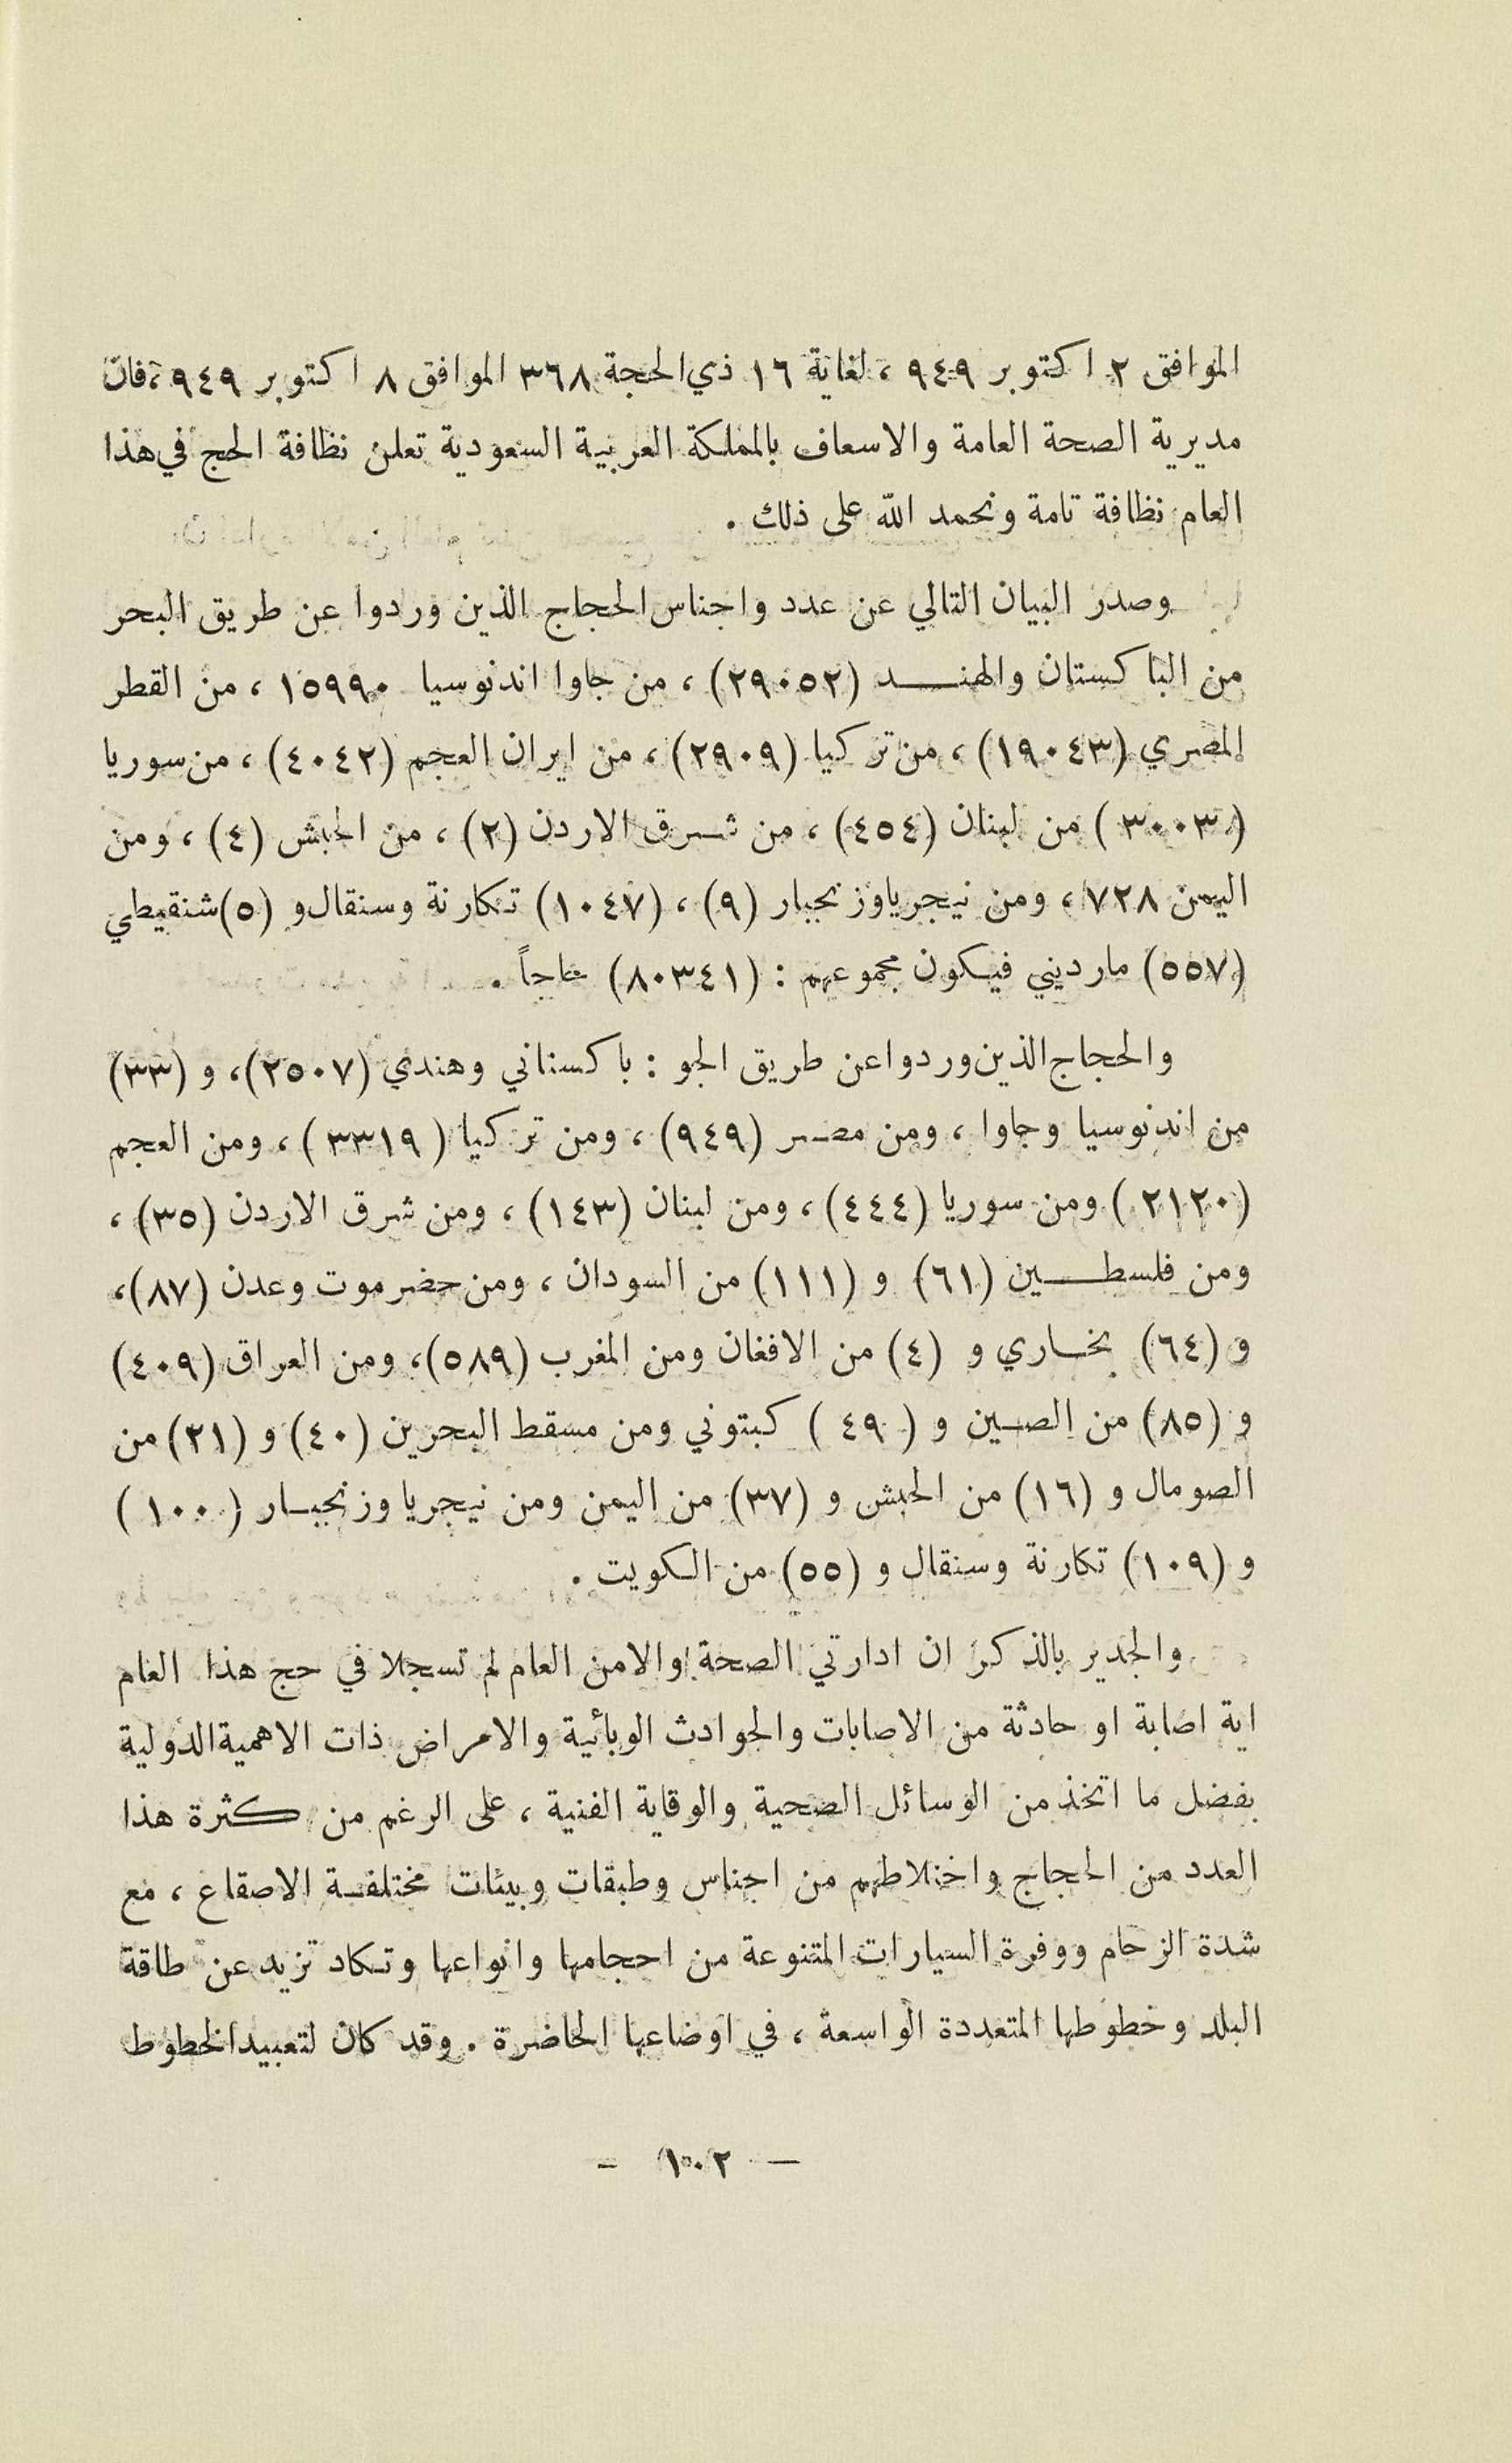 الموافق ٢ اكتوبر ٩٤٩ ، لغاية ١٦ ذي الحجة ٣٦٨ الموافق ٨ اكتوبر ٩٤٩ ، فان
مديرية الصحة العامة والاسعاف بالمملكة العربية السعودية تعلن نظافة الحج في هذا
العام نظافة تامة ونحمد الله على ذلك .
وصدر البيان التالي عن عدد واجناس الحجاج الذين وردوا عن طريق البحر
من الباكستان والهنــــد (٢٩٠٥٢) ، من جاوا اندنوسيا ١٥٩٩٠ ، من القطر
المصري (١٩٠٤٣) ، من تركيا (٢٩٠٩) ، من ايران العجم (٤٠٤٢) ، من سوريا
(٣٠٠٣) من لبنان (٤٥٤) ، من شـرق الاردن (٢) ، من الحبش (٤) ، ومن
اليمن ٧٢٨ ، ومن نيجريا وزنجبار (٩) ، (١٠٤٧) تكارنة وسنقال و (٥) شنقيطي
(٥٥٧) مارديني فيكون مجموعهم : (٨٠٣٤١) حاجاً .
والحجاج الذين وردوا عن طريق الجو : باكستاني وهندي (٢٥٠٧) ، و (٣٣)
من اندنوسيا وجاوا ، ومن مصـر (٩٤٩) ، ومن تركيا (٣٣١٩) ، ومن العجم
(٢١٢٠) ومن سوريا (٤٤٤) ، ومن لبنان (١٤٣) ، ومن شرق الاردن (٣٥) ،
ومن فلسطــــين (٦١) و (١١١) من السودان ، ومن حضرموت وعدن (٨٧) ،
و (٦٤) بخـاري و (٤) من الافغان ومن المغرب (٥٨٩) ، ومن العراق (٤٠٩)
و (٨٥) من الصـين و (٤٩) كبتوني ومن مسقط البحرين (٤٠) و (٢١) من
الصومال و (١٦) من الحبش و (٣٧) من اليمن ومن نيجريا وزنجبـار (١٠٠)
و (١٠٩) تكارنة وسنقال و (٥٥) من الكويت .
والجدير بالذكر ان ادارتي الصحة والامن العام لم تسجلا في حج هذا العام
اية اصابة او حادثة من الاصابات والحوادث الوبأئية والامراض ذات الاهمية الدولية
بفضل ما اتخذ من الوسائل الصحية والوقاية الفنية ، على الرغم من كثرة هذا
العدد من الحجاج واختلاطهم من اجناس وطبقات وبيئات مختلفـة الاصقاع ، مع
شدة الزحام ووفرة السيارات المتنوعة من احجامها وانواعها وتكاد تزيد عن طاقة
البلد وخطوطها المتعددة الواسعة ، في اوضاعها الحاضرة . وقد كان لتعبيد الخطوط
— ١٠٢ -